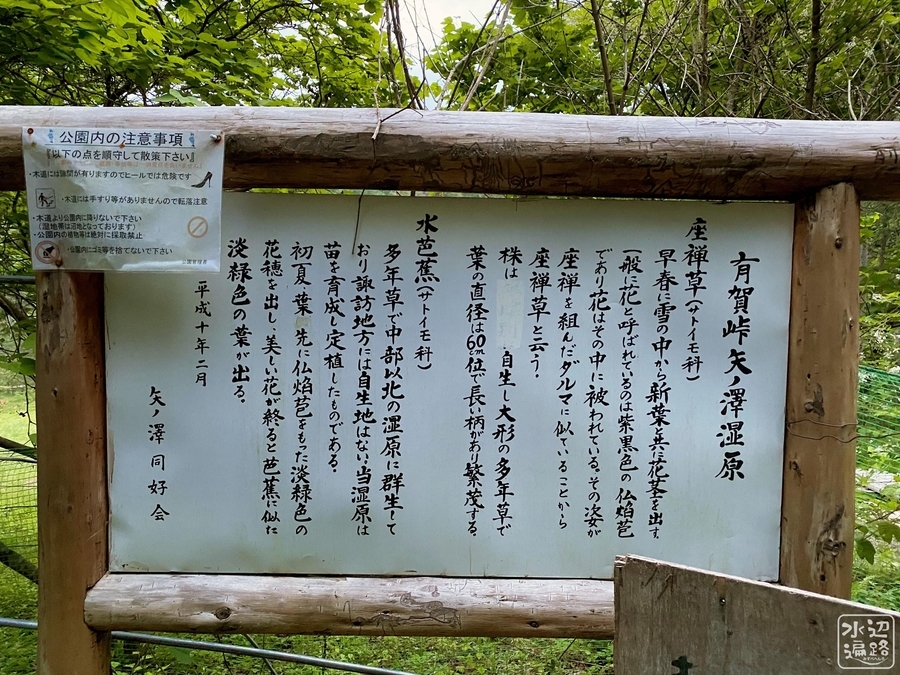 有賀峠矢ノ澤湿原
座禅草(サトイモ科)
早春に雪の中から新葉と共に花茎を出す。
一般に花と呼ばれているのは紫黒色の仏焔苞
であり花はその中に被われている。その姿が
座禅を組んだダルマに似ていることから
座禅草と云う。
株は
自生し大形の多年草で
葉の直径は60cm位で長い柄があり繁茂する。
水芭蕉(サトイモ科)
多年草で中部以北の湿原に群生して
おり諏訪地方には自生地はない。当湿原は
苗を育成し定植したものである。
初夏、葉
先に仏焔苞をもった淡緑色の
花穂を出し、美しい花が終ると芭蕉に似た
淡緑色の葉が出る。
平成十年二月
矢ノ澤同好会
公園内の注意事項
『以下の点を順守して散策下さい』
・木道には隙間が有りますのでヒールでは危険です
・木道には手すり等がありませんので転落注意
・木道より公園内に降りないで下さい
(湿地帯は沼地となっております)
・公園内の植物等は絶対に採取禁止
・公園内にゴミ等を捨てないで下さい
水辺遍路